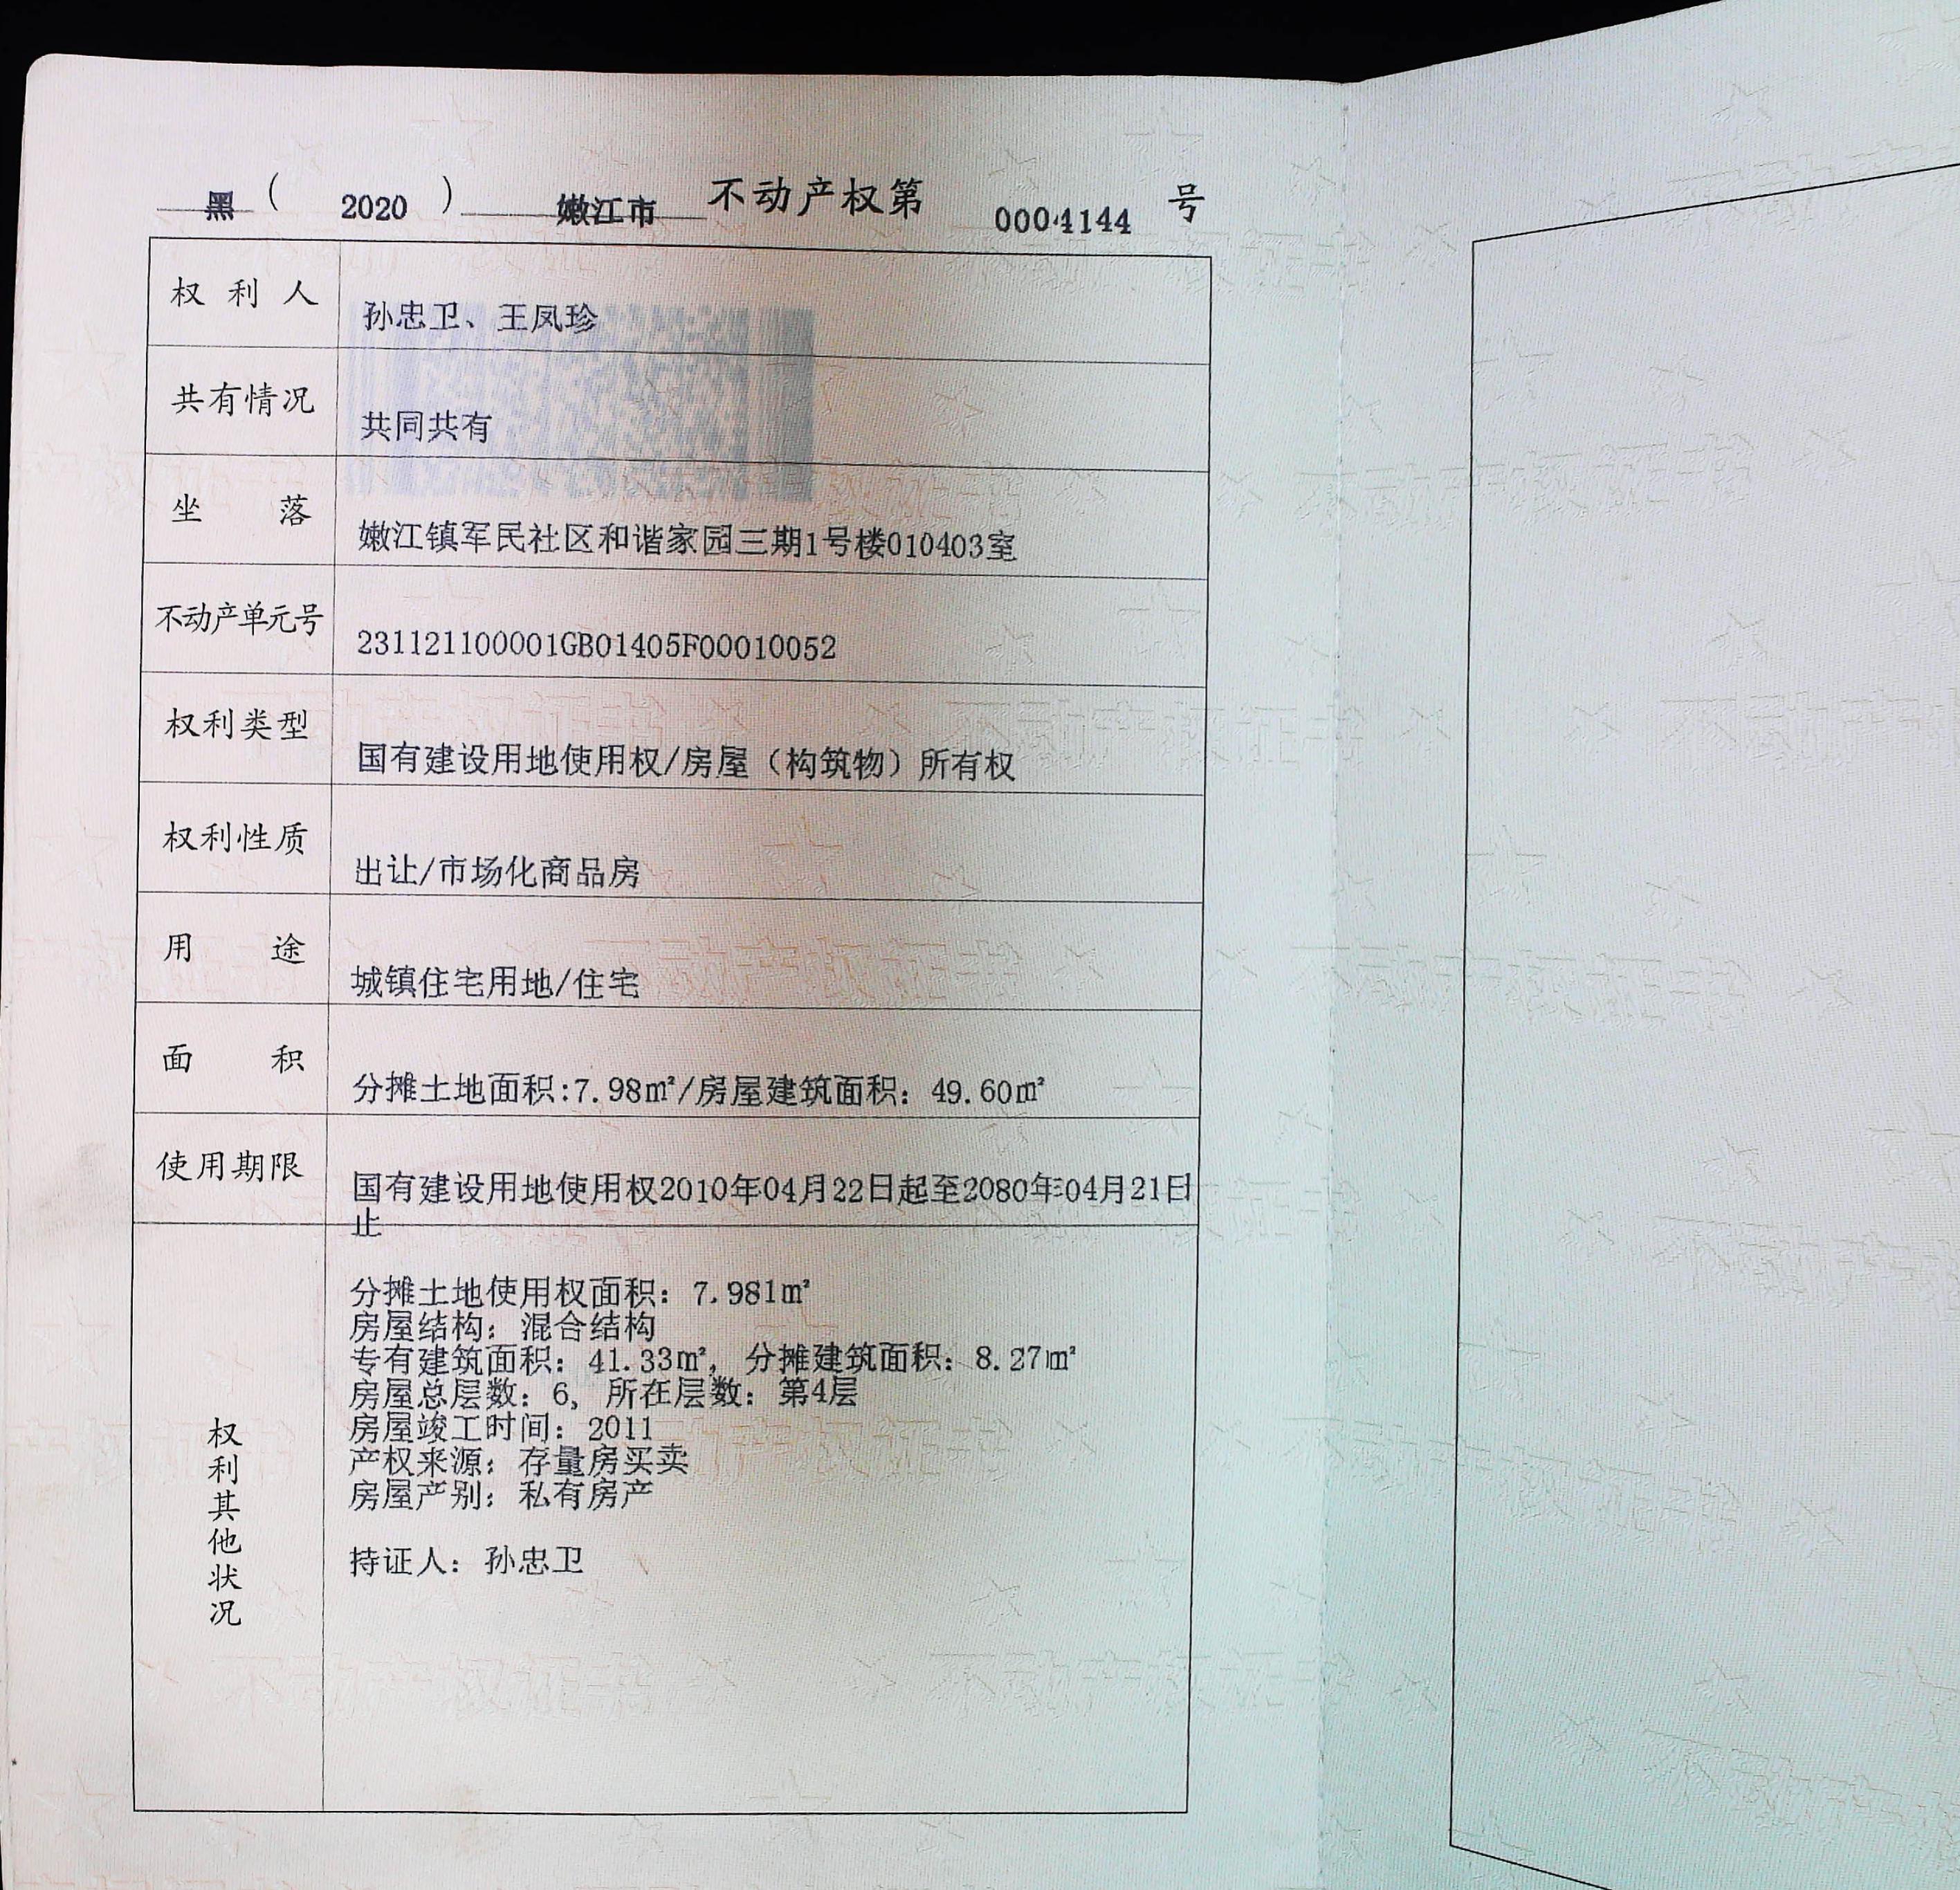 黑 ( 2020 ) 嫩江市 不动产权第 0004144 号
权利人 孙忠卫、王凤珍
共有情况 共同共有
坐落 嫩江镇军民社区和谐家园三期1号楼010403室
不动产单元号 231121100001GB01405F00010052
权利类型 国有建设用地使用权/房屋（构筑物）所有权
权利性质 出让/市场化商品房
用途 城镇住宅用地/住宅
面积 分摊土地面积:7.98㎡/房屋建筑面积：49.60㎡
使用期限 国有建设用地使用权2010年04月22日起至2080年04月21日
止
权利其他状况
分摊土地使用权面积：7.981㎡
房屋结构：混合结构
专有建筑面积：41.33㎡，分摊建筑面积：8.27㎡
房屋总层数：6，所在层数：第4层
房屋竣工时间：2011
产权来源：存量房买卖
房屋产别：私有房产
持证人：孙忠卫